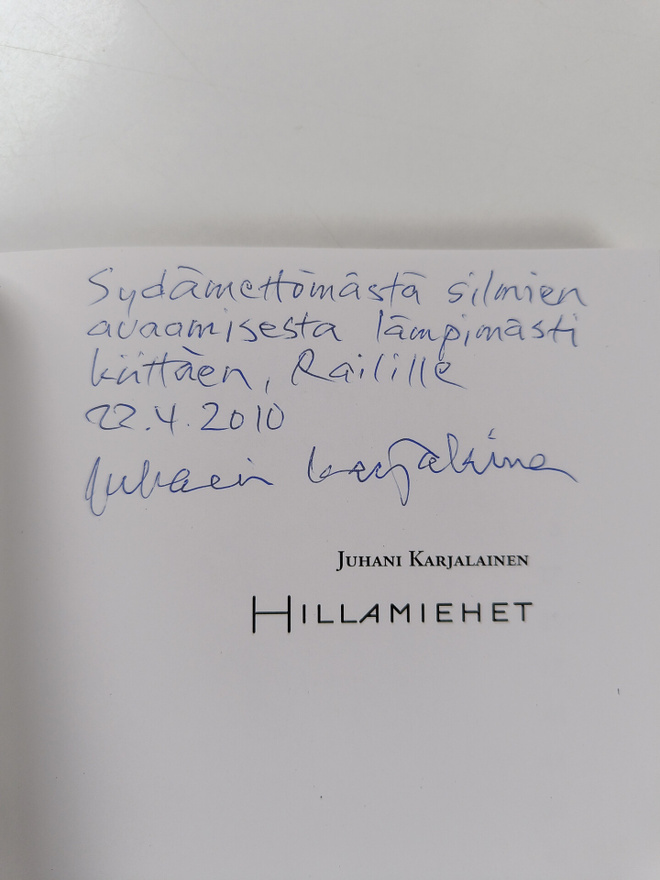 Sydämettömästä silmien
avaamisesta lämpimästi
kiittäen, Railille
22.4.2010
Juhani Karjalainen
JUHANI KARJALAINEN
HILLAMIEHET